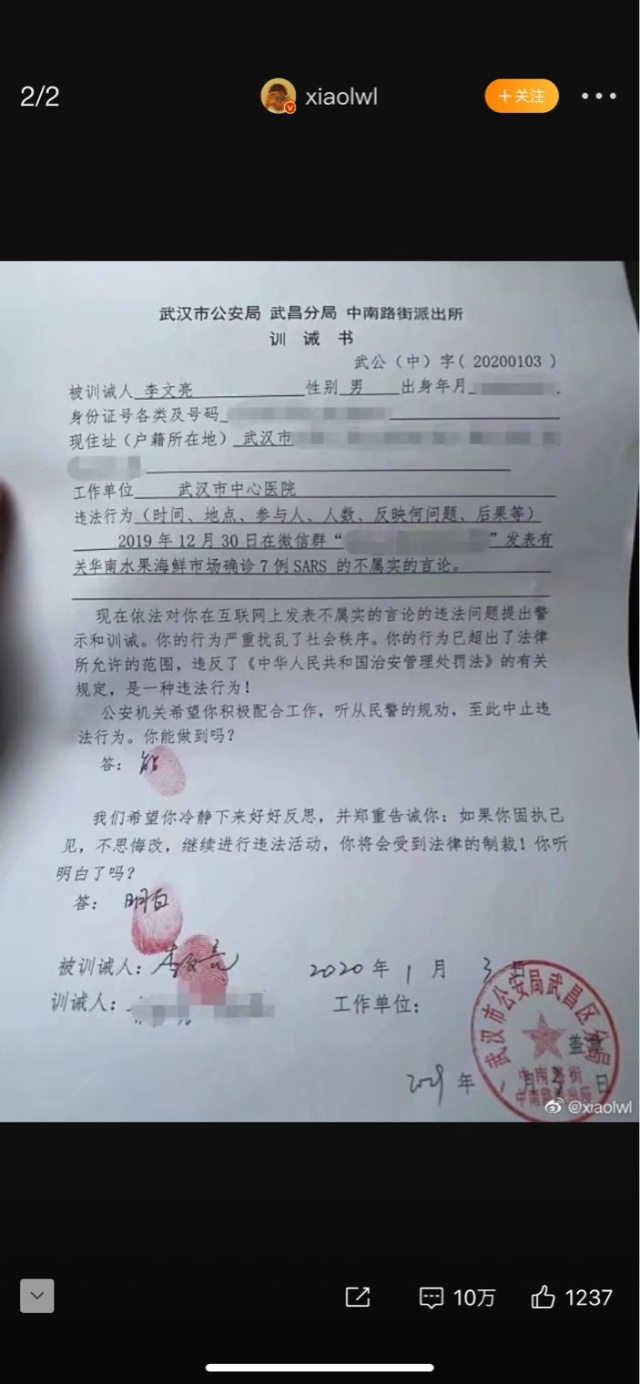 2/2
xiaolwl
+关注
武汉市公安局 武昌分局 中南路街派出所
训 诫 书
武公（中）字（ 20200103 ）
被训诫人 李文亮 性别 男 出身年月
身份证号各类及号码
现住址（户籍所在地） 武汉市
工作单位 武汉市中心医院
违法行为（时间、地点、参与人、人数、反映何问题、后果等）
2019 年 12 月 30 日在微信群“ ”发表有
关华南水果海鲜市场确诊 7 例 SARS 的不属实的言论。
现在依法对你在互联网上发表不属实的言论的违法问题提出警
示和训诫。你的行为严重扰乱了社会秩序。你的行为已超出了法律
所允许的范围，违反了《中华人民共和国治安管理处罚法》的有关
规定，是一种违法行为！
公安机关希望你积极配合工作，听从民警的规劝，至此中止违
法行为。你能做到吗？
答： 能
我们希望你冷静下来好好反思，并郑重告诫你：如果你固执己
见，不思悔改，继续进行违法活动，你将会受到法律的制裁！你听
明白了吗？
答： 明白
被训诫人：李文亮 2020 年 1 月 3 日
训诫人： 工作单位：
武汉市公安局武昌区分局
中南路街
年 月 日
@xiaolwl
10万
1237